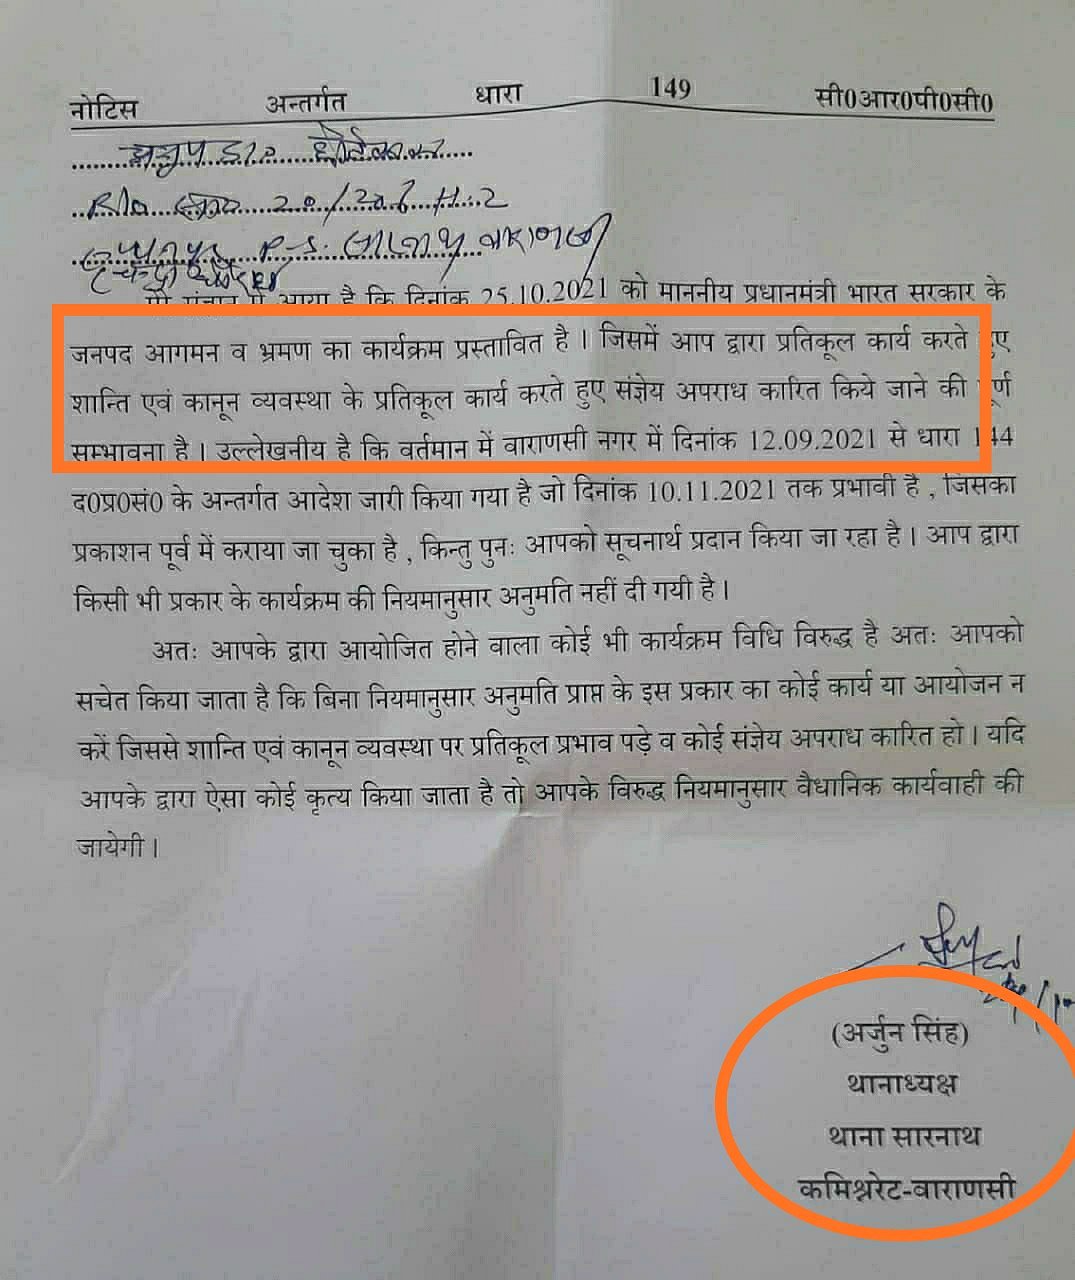 नोटिस अन्तर्गत धारा 149 सी0आर0पी0सी0
R/o 20/206 H.2
P.S. सारनाथ वाराणसी
में आया है कि दिनांक 25.10.2021 को माननीय प्रधानमंत्री भारत सरकार के
जनपद आगमन व भ्रमण का कार्यक्रम प्रस्तावित है । जिसमें आप द्वारा प्रतिकूल कार्य करते हुए
शान्ति एवं कानून व्यवस्था के प्रतिकूल कार्य करते हुए संज्ञेय अपराध कारित किये जाने की पूर्ण
सम्भावना है । उल्लेखनीय है कि वर्तमान में वाराणसी नगर में दिनांक 12.09.2021 से धारा 144
द0प्र0सं0 के अन्तर्गत आदेश जारी किया गया है जो दिनांक 10.11.2021 तक प्रभावी है , जिसका
प्रकाशन पूर्व में कराया जा चुका है , किन्तु पुनः आपको सूचनार्थ प्रदान किया जा रहा है । आप द्वारा
किसी भी प्रकार के कार्यक्रम की नियमानुसार अनुमति नहीं दी गयी है ।
अतः आपके द्वारा आयोजित होने वाला कोई भी कार्यक्रम विधि विरुद्ध है अतः आपको
सचेत किया जाता है कि बिना नियमानुसार अनुमति प्राप्त के इस प्रकार का कोई कार्य या आयोजन न
करें जिससे शान्ति एवं कानून व्यवस्था पर प्रतिकूल प्रभाव पड़े व कोई संज्ञेय अपराध कारित हो । यदि
आपके द्वारा ऐसा कोई कृत्य किया जाता है तो आपके विरुद्ध नियमानुसार वैधानिक कार्यवाही की
जायेगी ।
(अर्जुन सिंह)
थानाध्यक्ष
थाना सारनाथ
कमिश्नरेट-वाराणसी